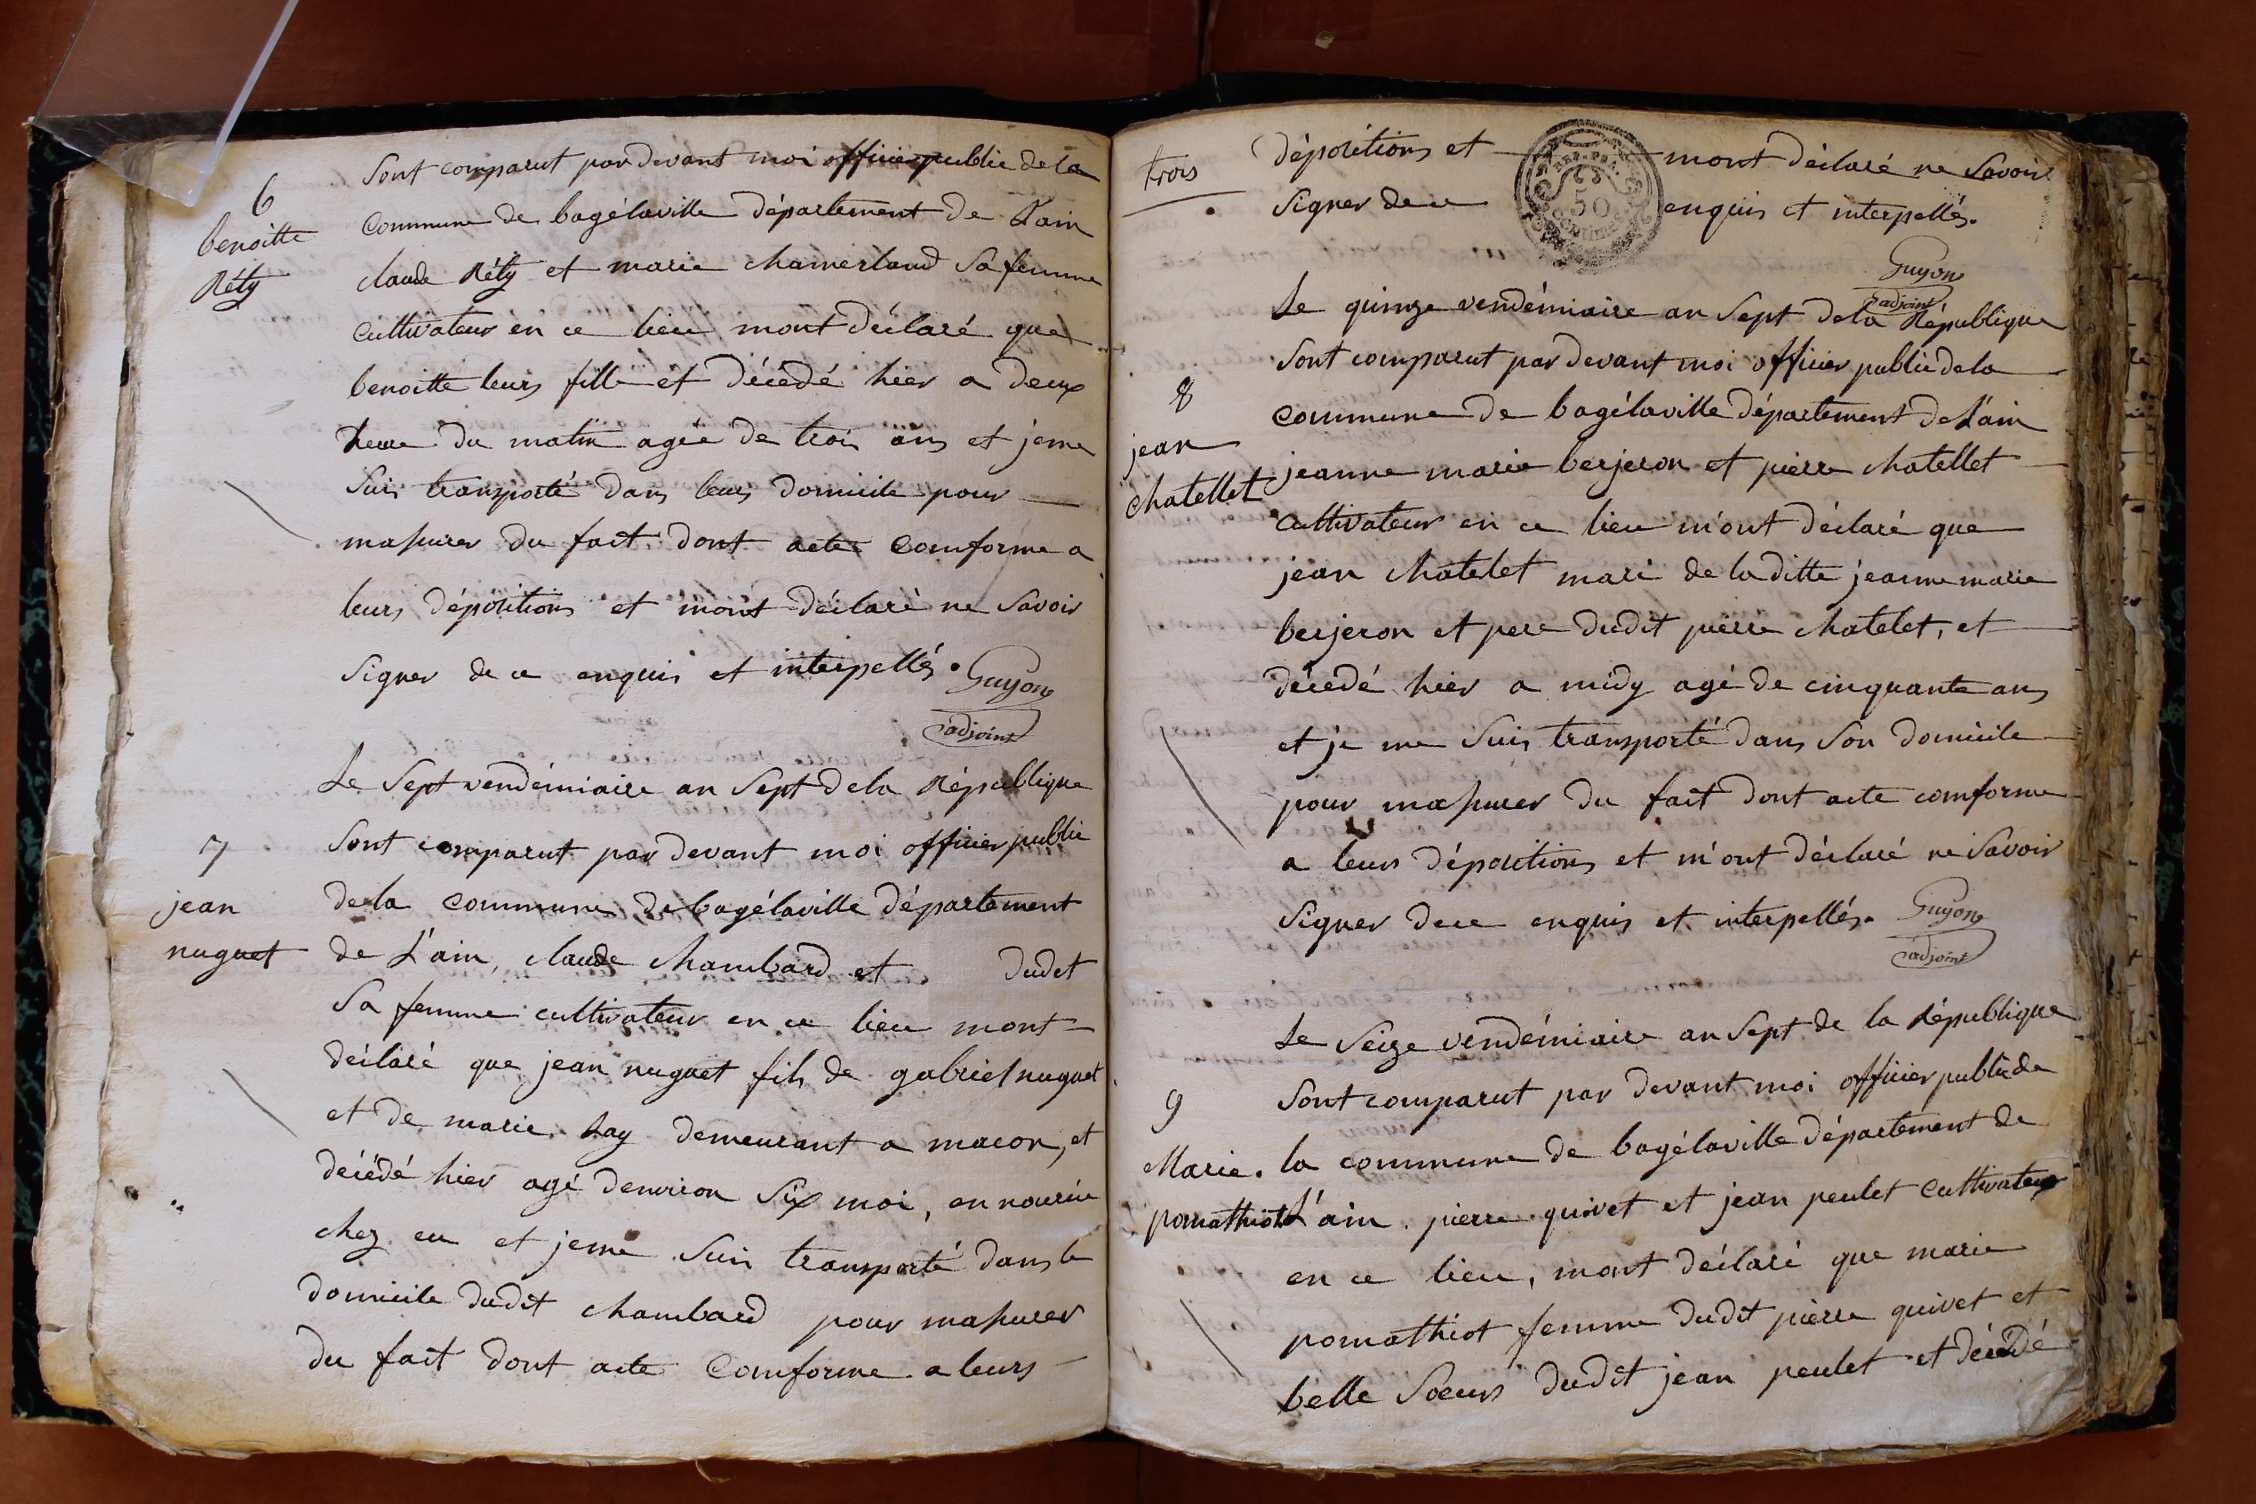 6
benoitte
Réty
Sont comparut par devant moi officier public de la
commune de bagélaville département de L'ain
claude Réty et marie chamerland Sa femme
cultivateur en ce lieu mont déclaré que
benoitte leurs fille et décédé hier a deux
heure du matin agée de trois ans et jeme
Suis transporté dans leurs domicile pour
massurer du fait dont acte comforme a
leurs dépositions et mont déclaré ne Savoir
Signer de ce enquis et interpellés.
Guyon
adjoint
Le Sept vendémiaire an Sept dela République
7
jean
nuguet
Sont comparut par devant moi officier public
dela commune de bagélaville département
de L'ain, claude chambard et dudet
Sa femme cultivateur en ce lieu mont
déclaré que jean nuguet fils de gabriel nuguet
et de marie hay demeurant a macon, et
décédé hier agé denviron Six moi, en nourice
chez eu et jeme Suis transporté dans le
domicile dudit chambard pour massurer
du fait dont acte comforme a leurs
trois
dépositions et mont déclaré ne Savoir
Signer de ce enquis et interpellés.
REP. FRA.
50
Centimes
Guyon
adjoint
Le quinze vendémiaire an Sept dela République
Sont comparut par devant moi officier public dela
8
jean
chatellet
commune de bagélaville département de L'ain
jeanne marie berjeron et pierre chatellet
cultivateur en ce lieu m'ont déclaré que
jean chatelet mari de la ditte jeanne marie
berjeron et pere dudit pierre chatelet, et
décédé hier a midy agé de cinquante ans
et je me Suis transporté dans Son domicile
pour massurer du fait dont acte comforme
a leurs dépositions et m'ont déclaré ne Savoir
Signer de ce enquis et interpellés.
Guyon
adjoint
Le Seize vendémiaire an Sept de la République
9
Marie
pomathiot
Sont comparut par devant moi officier public de
la commune de bagélaville département de
L'ain. pierre quivet et jean peulet cultivateur
en ce lieu, mont déclaré que marie
pomathiot femme dudit pierre quivet et
belle Soeurs dudit jean peulet et décédé